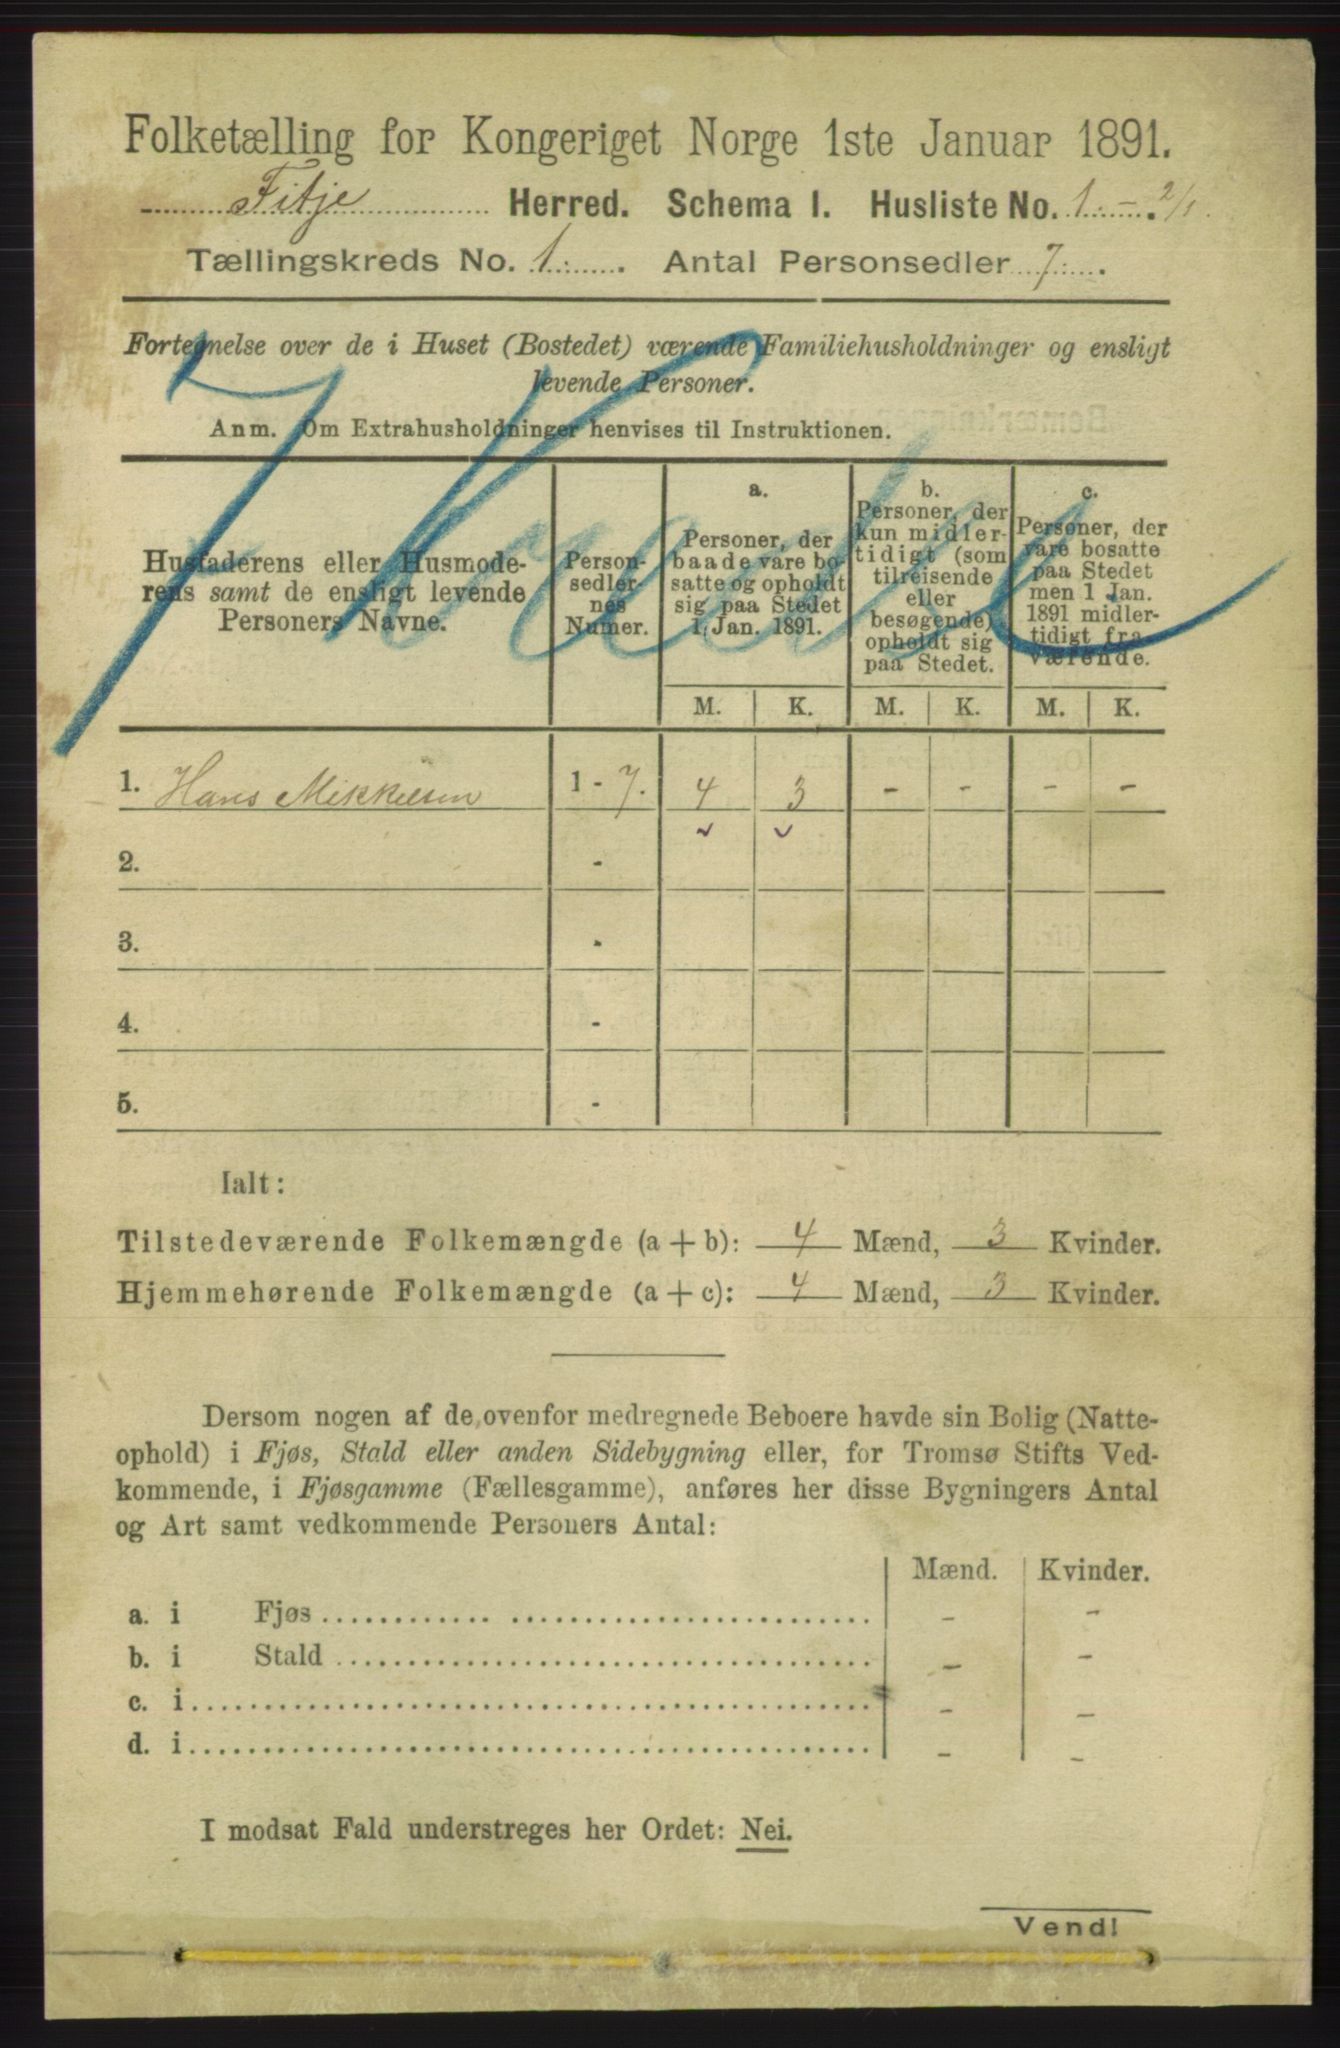 Folketælling for Kongeriget Norge 1ste Januar 1891.
Fitje Herred. Schema I. Husliste No. 1. 2/1.
Tællingskreds No. 1. Antal Personsedler 7.
Fortegnelse over de i Huset (Bostedet) værende Familiehusholdninger og ensligt
levende Personer.
Anm. Om Extrahusholdninger henvises til Instruktionen.
Husfaderens eller Husmode-
rens samt de ensligt levende
Personers Navne.
Person-
sedler-
nes
Numer.
a.
Personer, der
baade vare bo-
satte og opholdt
sig paa Stedet
1 Jan. 1891.
b.
Personer, der
kun midler-
tidigt (som
tilreisende
eller
besøgende)
opholdt sig
paa Stedet.
c.
Personer, der
vare bosatte
paa Stedet
men 1 Jan.
1891 midler-
tidigt fra-
værende.
M. K. M. K. M. K.
1. Hans Mikkelsen 1 - 7. 4 3 - - - -
2. -
3. -
4. -
5. -
Ialt:
Tilstedeværende Folkemængde (a + b): 4 Mænd, 3 Kvinder.
Hjemmehørende Folkemængde (a + c): 4 Mænd, 3 Kvinder.
Dersom nogen af de ovenfor medregnede Beboere havde sin Bolig (Natte-
ophold) i Fjøs, Stald eller anden Sidebygning eller, for Tromsø Stifts Ved-
kommende, i Fjøsgamme (Fællesgamme), anføres her disse Bygningers Antal
og Art samt vedkommende Personers Antal:
Mænd. Kvinder.
a. i Fjøs - -
b. i Stald - -
c. i - -
d. i - -
I modsat Fald understreges her Ordet: Nei.
Vend!